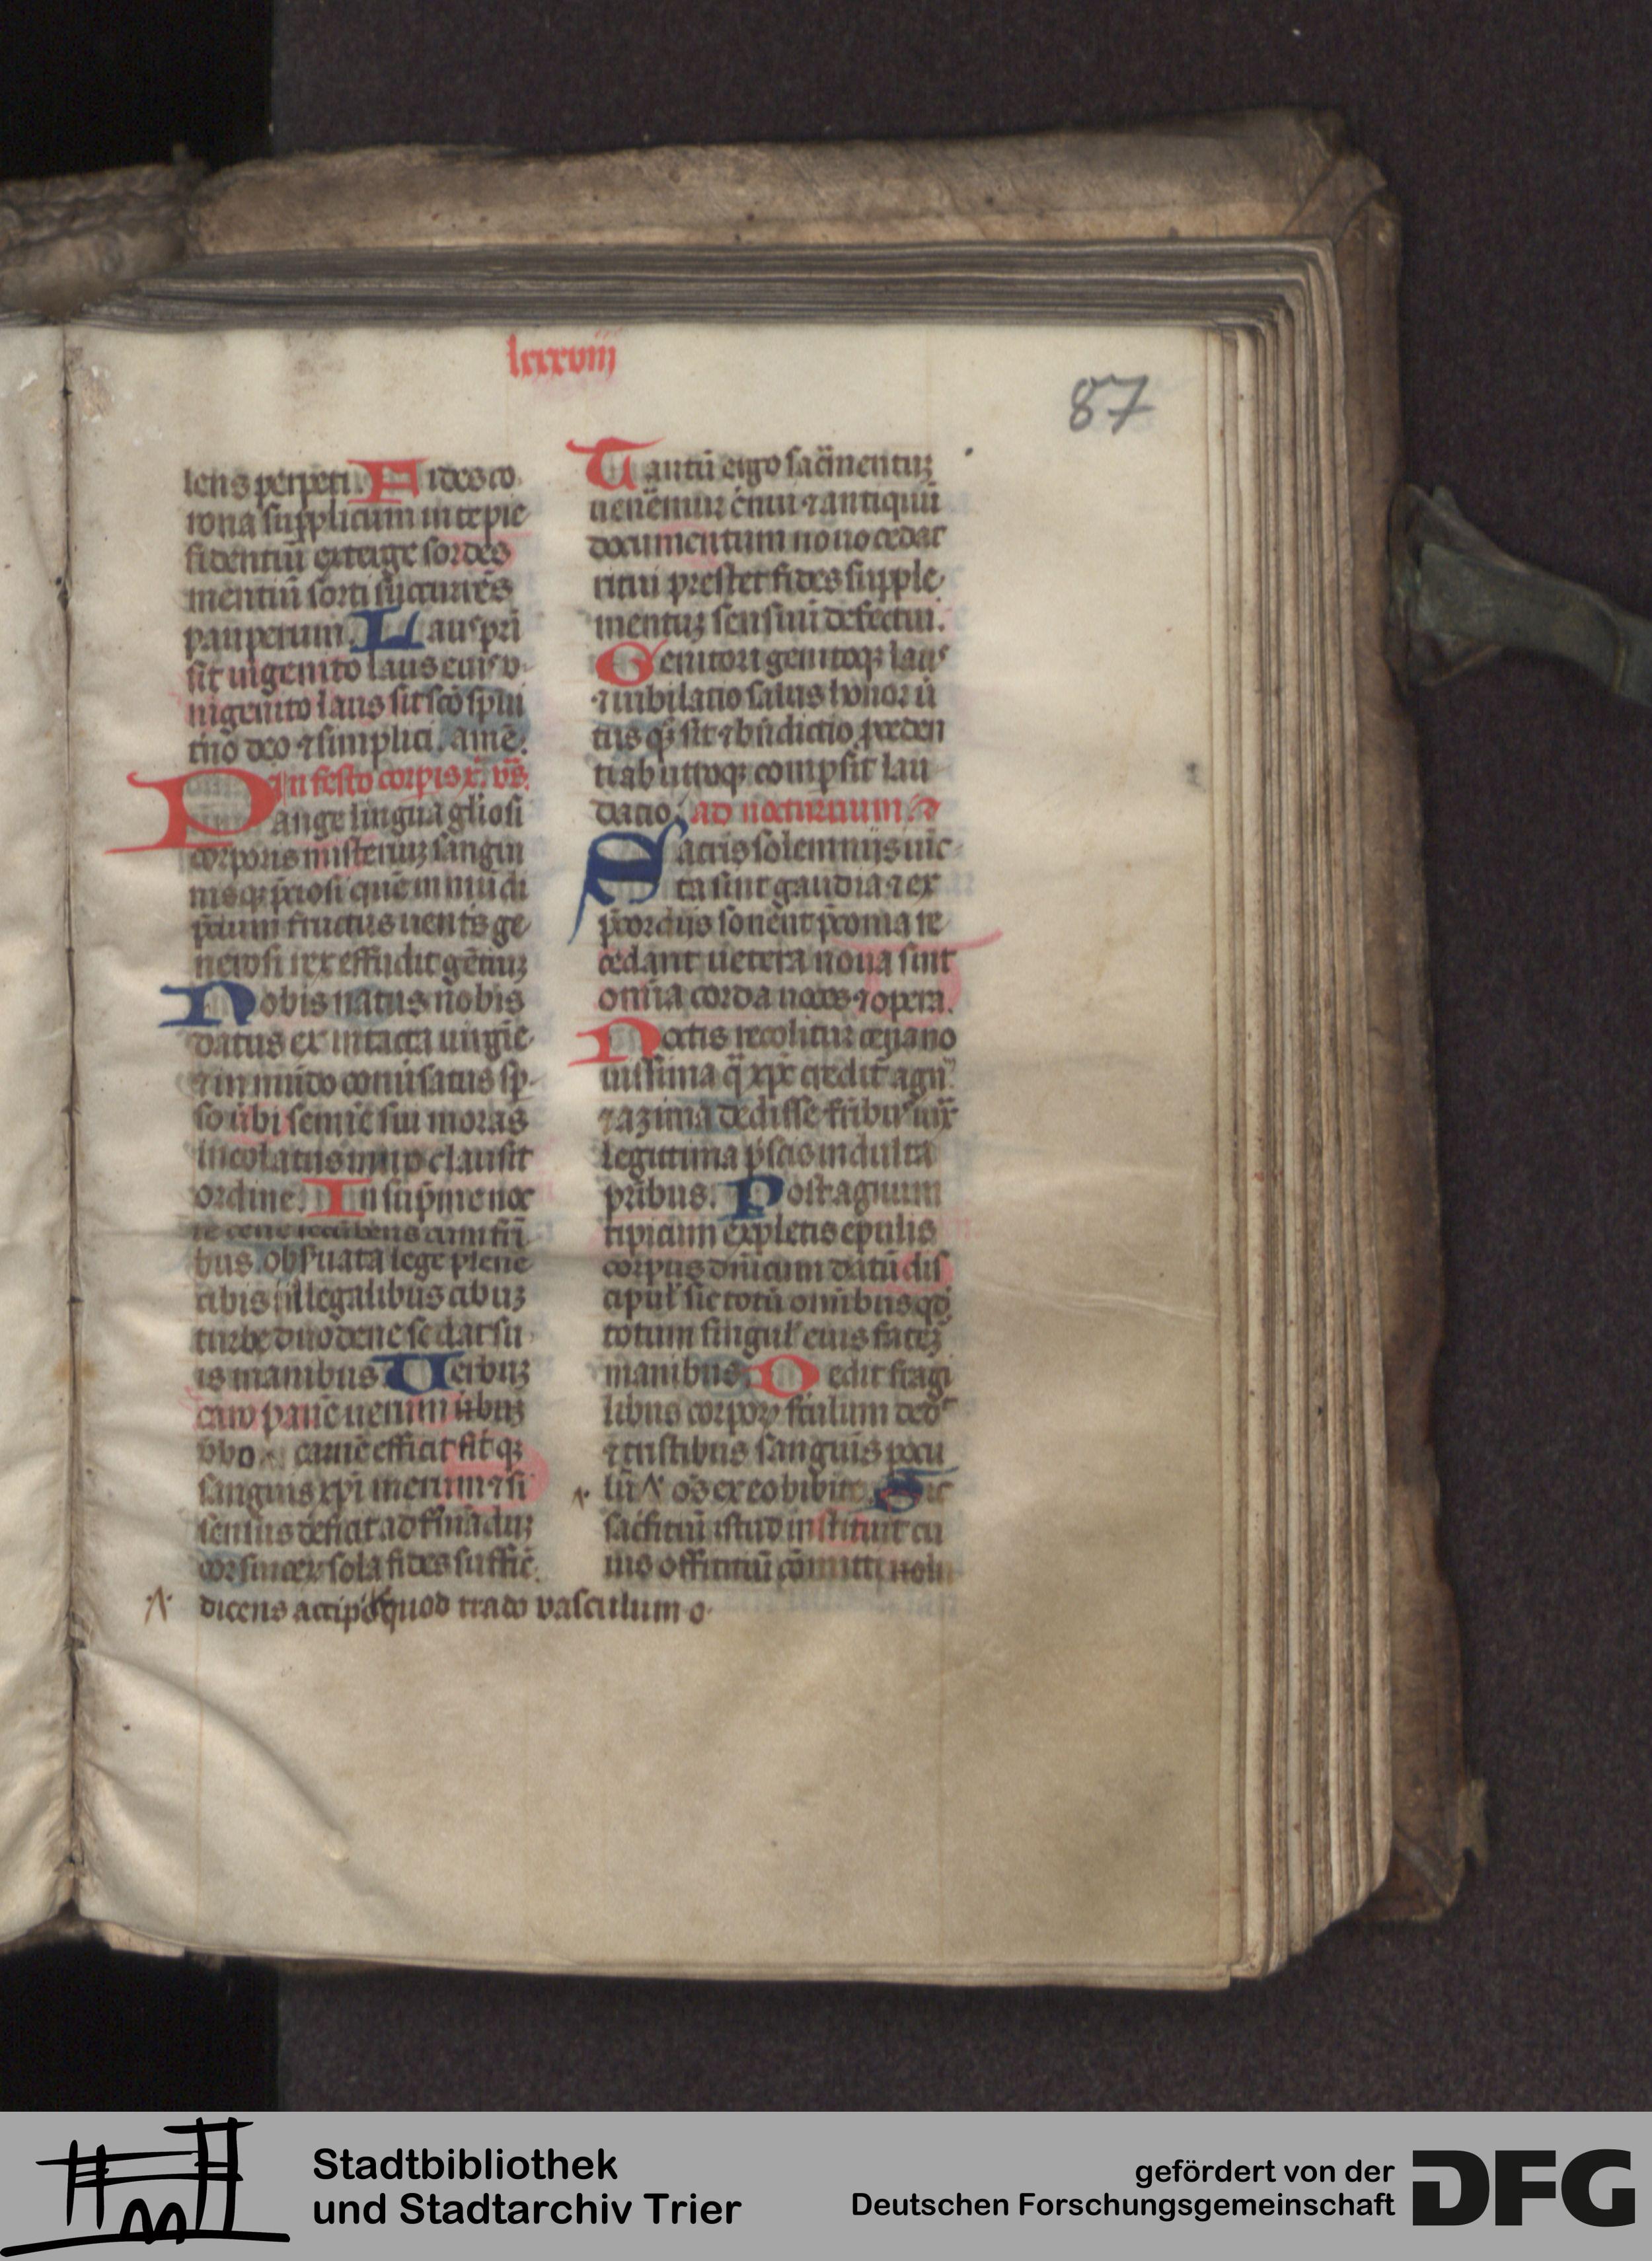 lxxxviii
87
lens perpeti. Fides co
rona supplicum in te pie
fidentiū exteɾge sordes
mentiū sorti succurrēs
pauperum. Laus pri
sit uigenito laus eius v
nigenito laus sit scō spiri
trino deo ⁊ simplici. amē.
In festo corpis x. vs.
Pange lingua gliosi
corporis misteriuꝫ sangui
nisqꝫ p̄ciosi quē in mūdi
p̄cium fructus uentris ge
nerosi rex effudit gentiuꝫ
Nobis natus nobis
datus ex intacta uirgīe
⁊ in mūdo conuersatus sp̄
so ūbi semīe sui moras
incolatus miro clausit
ordine. In sup̄me noc
te cene recūbens cum fri
bus. obseruata lege plene
cibis in legalibus cibuꝫ
turbe duodene se dat su
is manibus Uerbuꝫ
caro panē uerum
vbo carnē efficit fit qꝫ
sanguis xpi merum ⁊ si
sensus deficit ad firmāduꝫ
cor sincerꝝ sola fides suffic̄.
dicens accipite quod trado vasculum o
Tantū ergo sac̄mentuꝫ
uen̄emur c̄nui ⁊ antiquū
documentum nouo cedat
ritui prestet fides supple
mentuꝫ sensuū defectui.
Genitori genitoqꝫ laus
⁊ iubilatio salus honor ū
tus qꝫ sit ⁊ bn̄dictio proceden
ti ab utroqꝫ compar sit lau
datio. ad nocturnum
Sacris solemniis iūc
ta sint gaudia ⁊ ex
p̄cordiis sonent p̄conia re
cedant uetera noua sint
omīa corda uoces ⁊ opera.
Noctis recolitur cena no
uissima q̄ xpc credit̄ agnū
⁊ azima dedisse frībus iux
legittima p̄scis indulta
pr̄ibus. Post agnum
tipicum expletis epulis
corpus dn̄icum datū dis
cipul' sic totū omībus qd
totum singul' eius fatem̄
manibus. Dedit fragi
libus corporꝝ ferculum ded
⁊ tristibus sanguis pocu
lū os ex eo bibite. Sic
sacrificiū istud instituit cu
ius officiuū cōmitti uolu
Stadtbibliothek
und Stadtarchiv Trier
gefördert von der
Deutschen Forschungsgemeinschaft
DFG